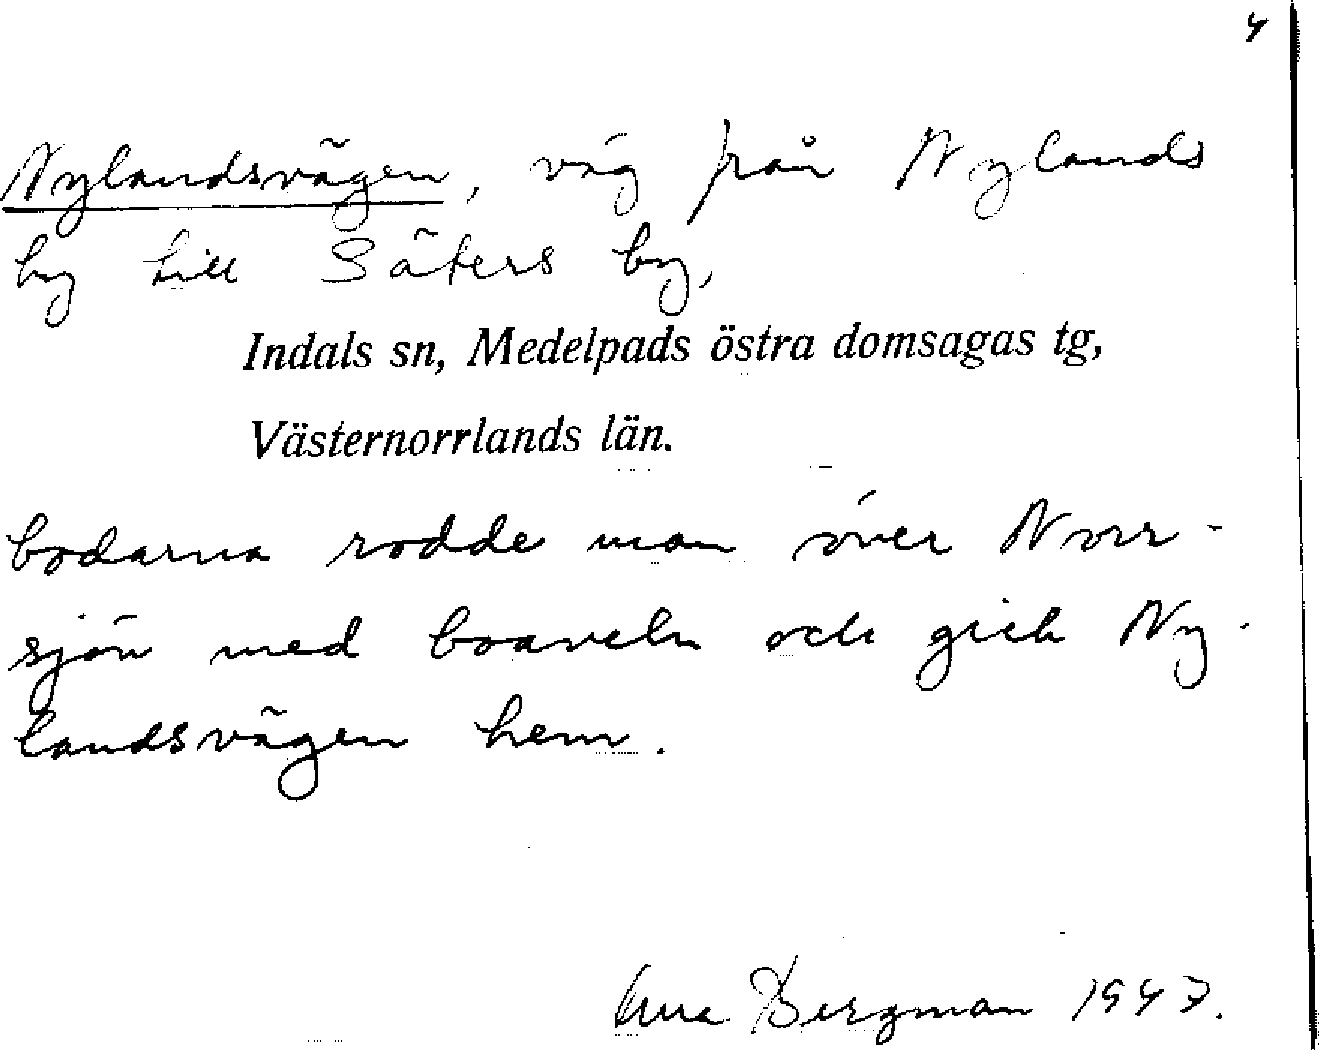 4
Nylandsvägen, väg från Nylands
by till Säters by,
Indals sn, Medelpads östra domsagas tg,
Västernorrlands län.
bodarna rodde man över Norr-
sjön med boaveln och gick Ny-
landsvägen hem.
Bergman 1947.